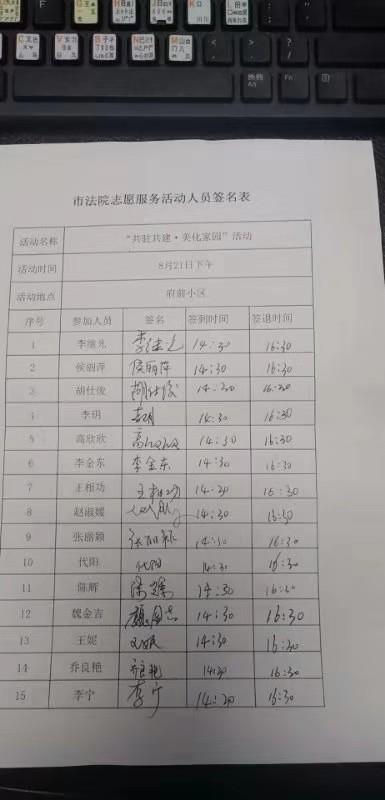 市法院志愿服务活动人员签名表
活动名称 “共驻共建·美化家园”活动
活动时间 8月21日下午
活动地点 府前小区
序号 参加人员 签名 签到时间 签退时间
1 李继允 李继允 14:30 16:30
2 侯丽萍 侯丽萍 14:30 16:30
3 胡仕俊 胡仕俊 14:30 16:30
4 李玥 14:30 16:30
5 高欣欣 高欣欣 14:30 16:30
6 李金东 李金东 14:30 16:30
7 王相功 王相功 14:20 16:30
8 赵淑媛 14:30 16:30
9 张丽颖 14:30 16:30
10 代阳 代阳 14:30 16:30
11 陈辉 14:30 16:30
12 魏金吉 14:30 16:30
13 王妮 王妮 14:30 16:30
14 乔良艳 14:30 16:30
15 李宁 李宁 14:20 16:30